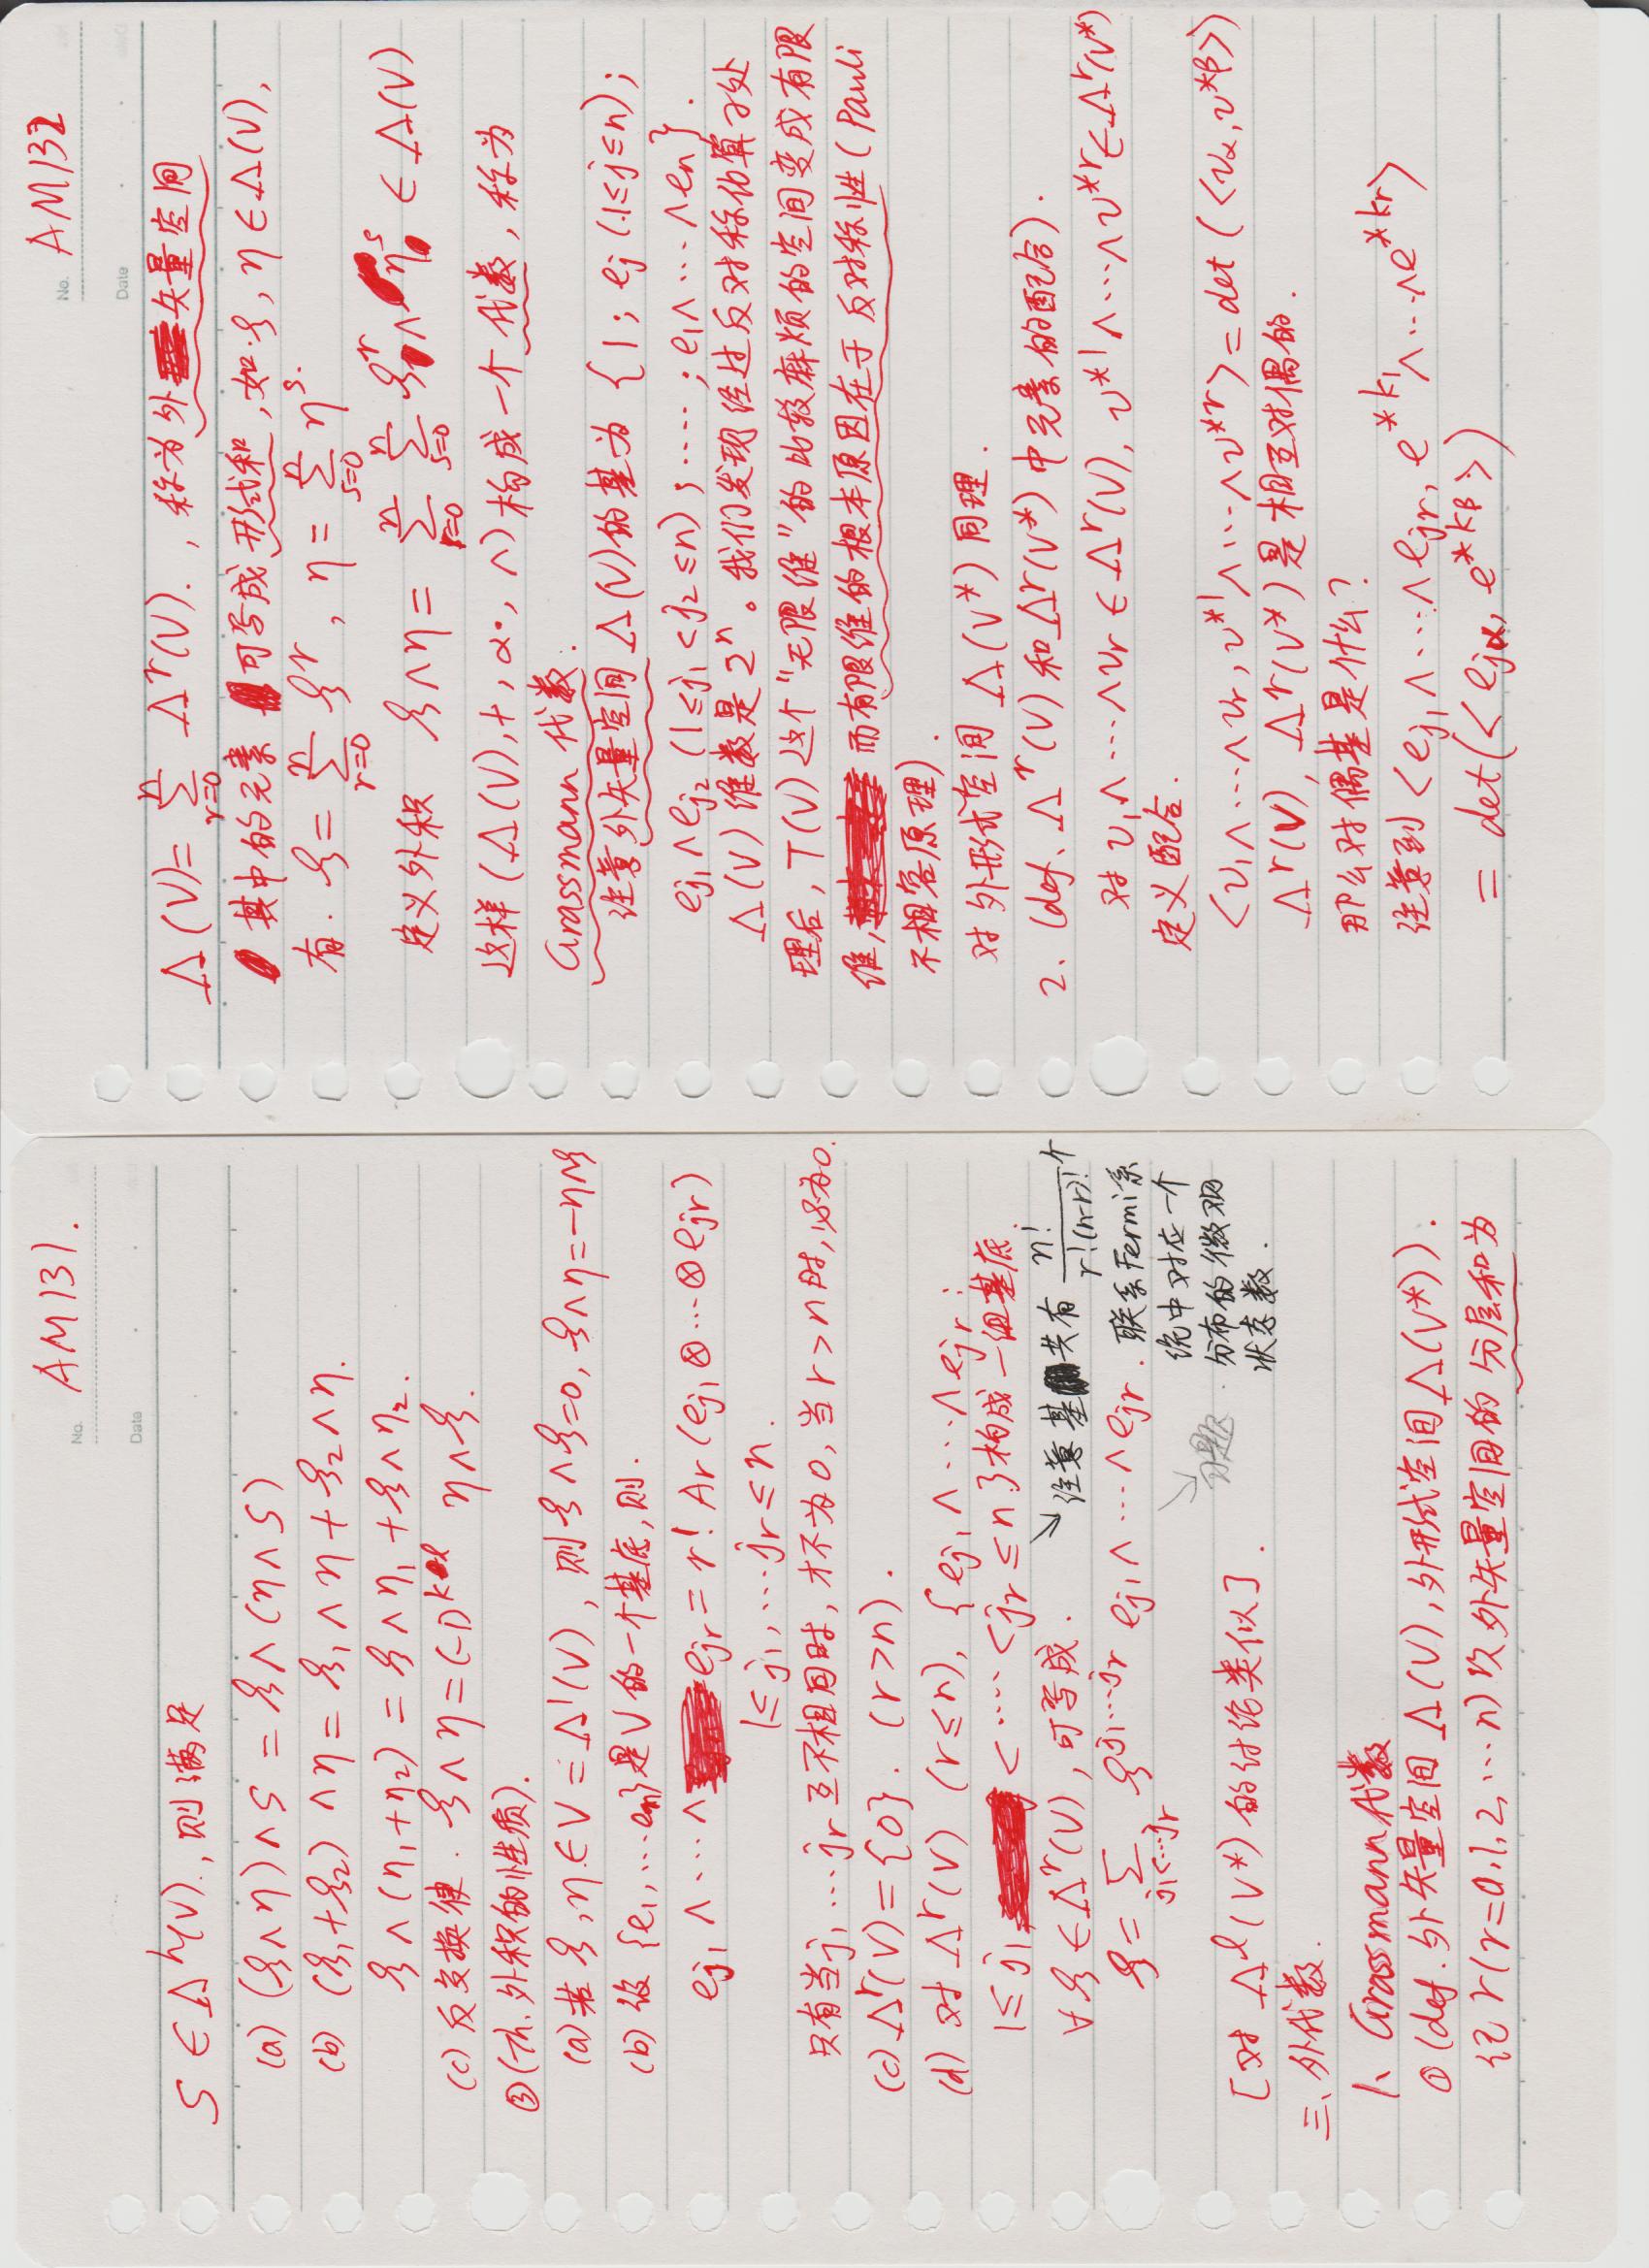 No. AM131.
Date
ζ ∈ Λʰ(V)., 则满足
(a) (ξ∧η)∧ζ = ξ∧(η∧ζ)
(b) (ξ₁+ξ₂)∧η = ξ₁∧η + ξ₂∧η.
ξ∧(η₁+η₂) = ξ∧η₁ + ξ∧η₂.
(c) 反交换律. ξ∧η = (-1)^{k·l} η∧ξ.
③ (Th. 外积的性质).
(a) 若 ξ, η ∈ V = Λ¹(V), 则 ξ∧ξ=0, ξ∧η=-η∧ξ
(b) 设 {e₁, …eₙ}是V的一个基底,则.
e_{j₁} ∧ … ∧ e_{jr} = r! Ar (e_{j₁} ⊗ … ⊗ e_{jr})
1≤ j₁, … jr ≤ n.
只有当j₁ … jr 互不相同时, 才不为0, 当 r>n 时, 必为0.
(c) Λʳ(V) = {0}. (r>n).
(d) 对 Λʳ(V) (r≤n), {e_{j₁} ∧ … ∧ e_{jr} :
1≤ j₁ < …. < jr ≤ n}构成一组基底.
注意基共有 n!/(r!(n-r)!) 个
∀ ξ ∈ Λʳ(V), 可写成.
ξ = Σ_{j₁<…jr} ξ^{j₁…jr} e_{j₁} ∧ … ∧ e_{jr}.
联系Fermi系
统中对应一个
分布的微观
状态数.
习题.
[对 Λˡ(V*) 的讨论类似].
三、外代数.
1、Grassmann代数
① (def. 外矢量空间 Λ(V), 外形式空间 Λ(V*)).
记 r(r=0,1,2,…n) 次外矢量空间的 分层和为
No. AM132
Date
Λ(V)= Σ_{r=0}^{n} Λʳ(V). , 称为外矢量空间
其中的元素可写成形式和, 如 ξ, η ∈ Λ(V),
有. ξ = Σ_{r=0}^{n} ξʳ, η = Σ_{s=0}^{n} ηˢ.
定义外积 ξ∧η = Σ_{r=0}^{n} Σ_{s=0}^{n} ξʳ∧ηˢ ∈ Λ(V)
这样 (Λ(V), +, α·, ∧) 构成一个代数, 称为
Grassmann 代数.
注意外矢量空间 Λ(V)的基为 {1; e_j (1≤j≤n);
e_{j₁}∧e_{j₂} (1≤j₁<j₂≤n); ….; e₁∧…∧eₙ}.
Λ(V) 维数是 2ⁿ。我们发现经过反对称化算子处
理后, T(V) 这个“无限维”的比较麻烦的空间变成有限
维, 而有限维的根本原因在于反对称性 (Pauli
不相容原理).
对外形式空间 Λ(V*) 同理.
2. (def. Λʳ(V) 和 Λʳ(V*) 中元素的配合).
对 v₁∧…∧vr ∈ Λʳ(V), v*¹∧…∧v*ʳ ∈ Λʳ(V*)
定义配合.
<v₁∧…∧vr, v*¹∧…∧v*ʳ> = det (<v_α, v*^β>)
Λʳ(V), Λʳ(V*) 是相互对偶的.
那么对偶基是什么?
注意到 <e_{j₁}∧…∧e_{jr}, e*^{k₁}∧…∧e*^{kr}>
= det(<e_{jα}, e*^{kβ}>)